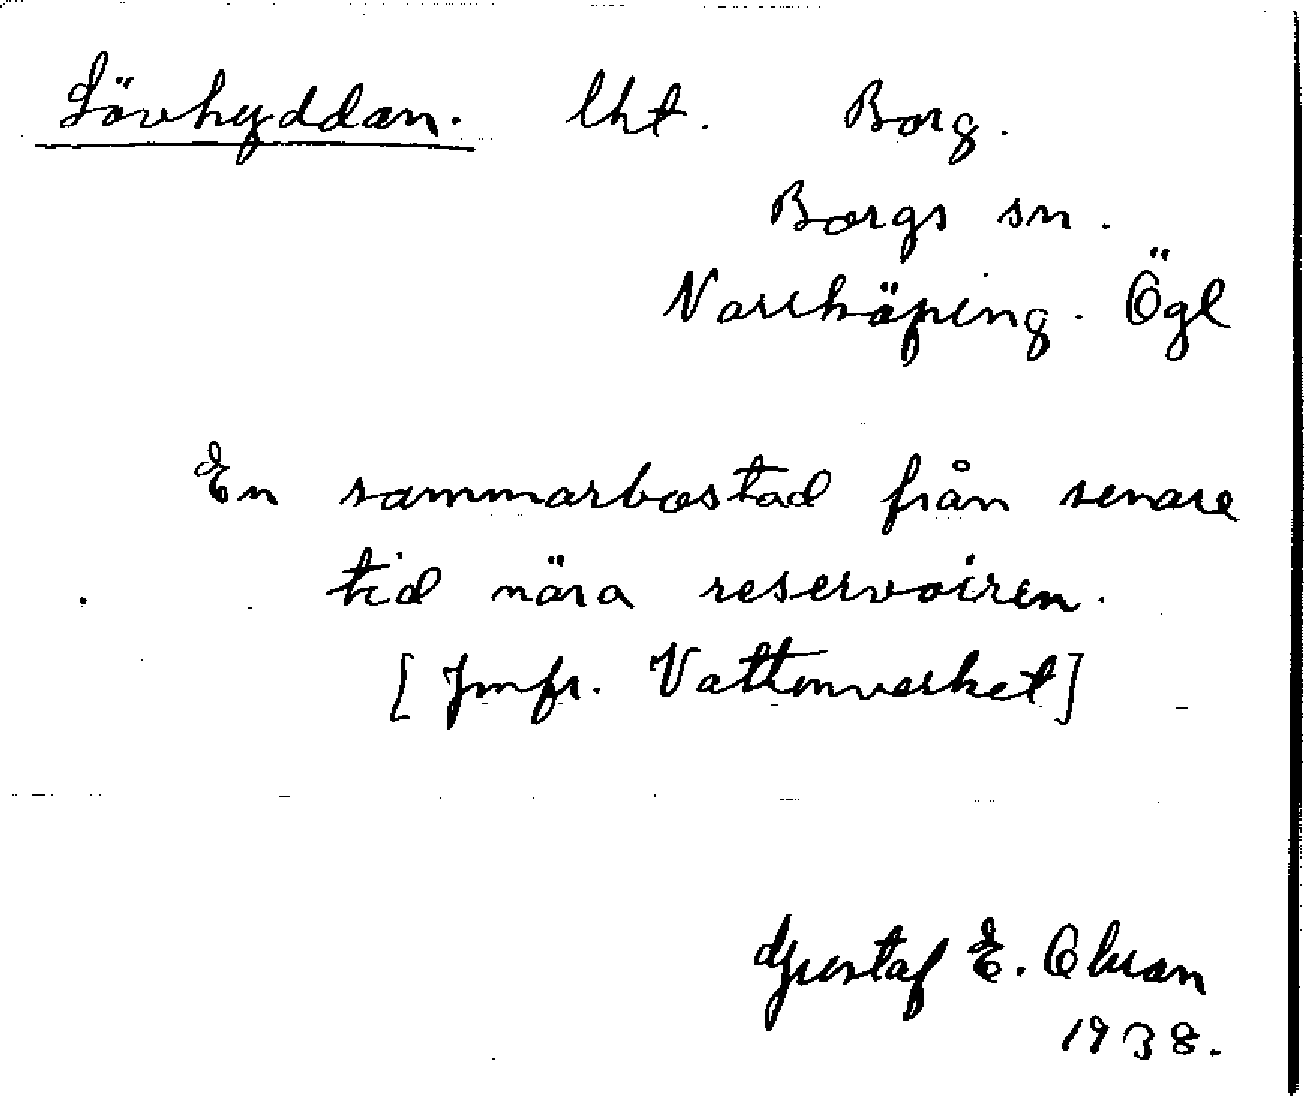 Lövhyddan. lht. Borg.
Borgs sn.
Norrköping. Ögl
En sommarbostad från senare
tid nära reservoiren.
[Jmfr. Vattenverket]
Gustaf E. Olsson
1938.